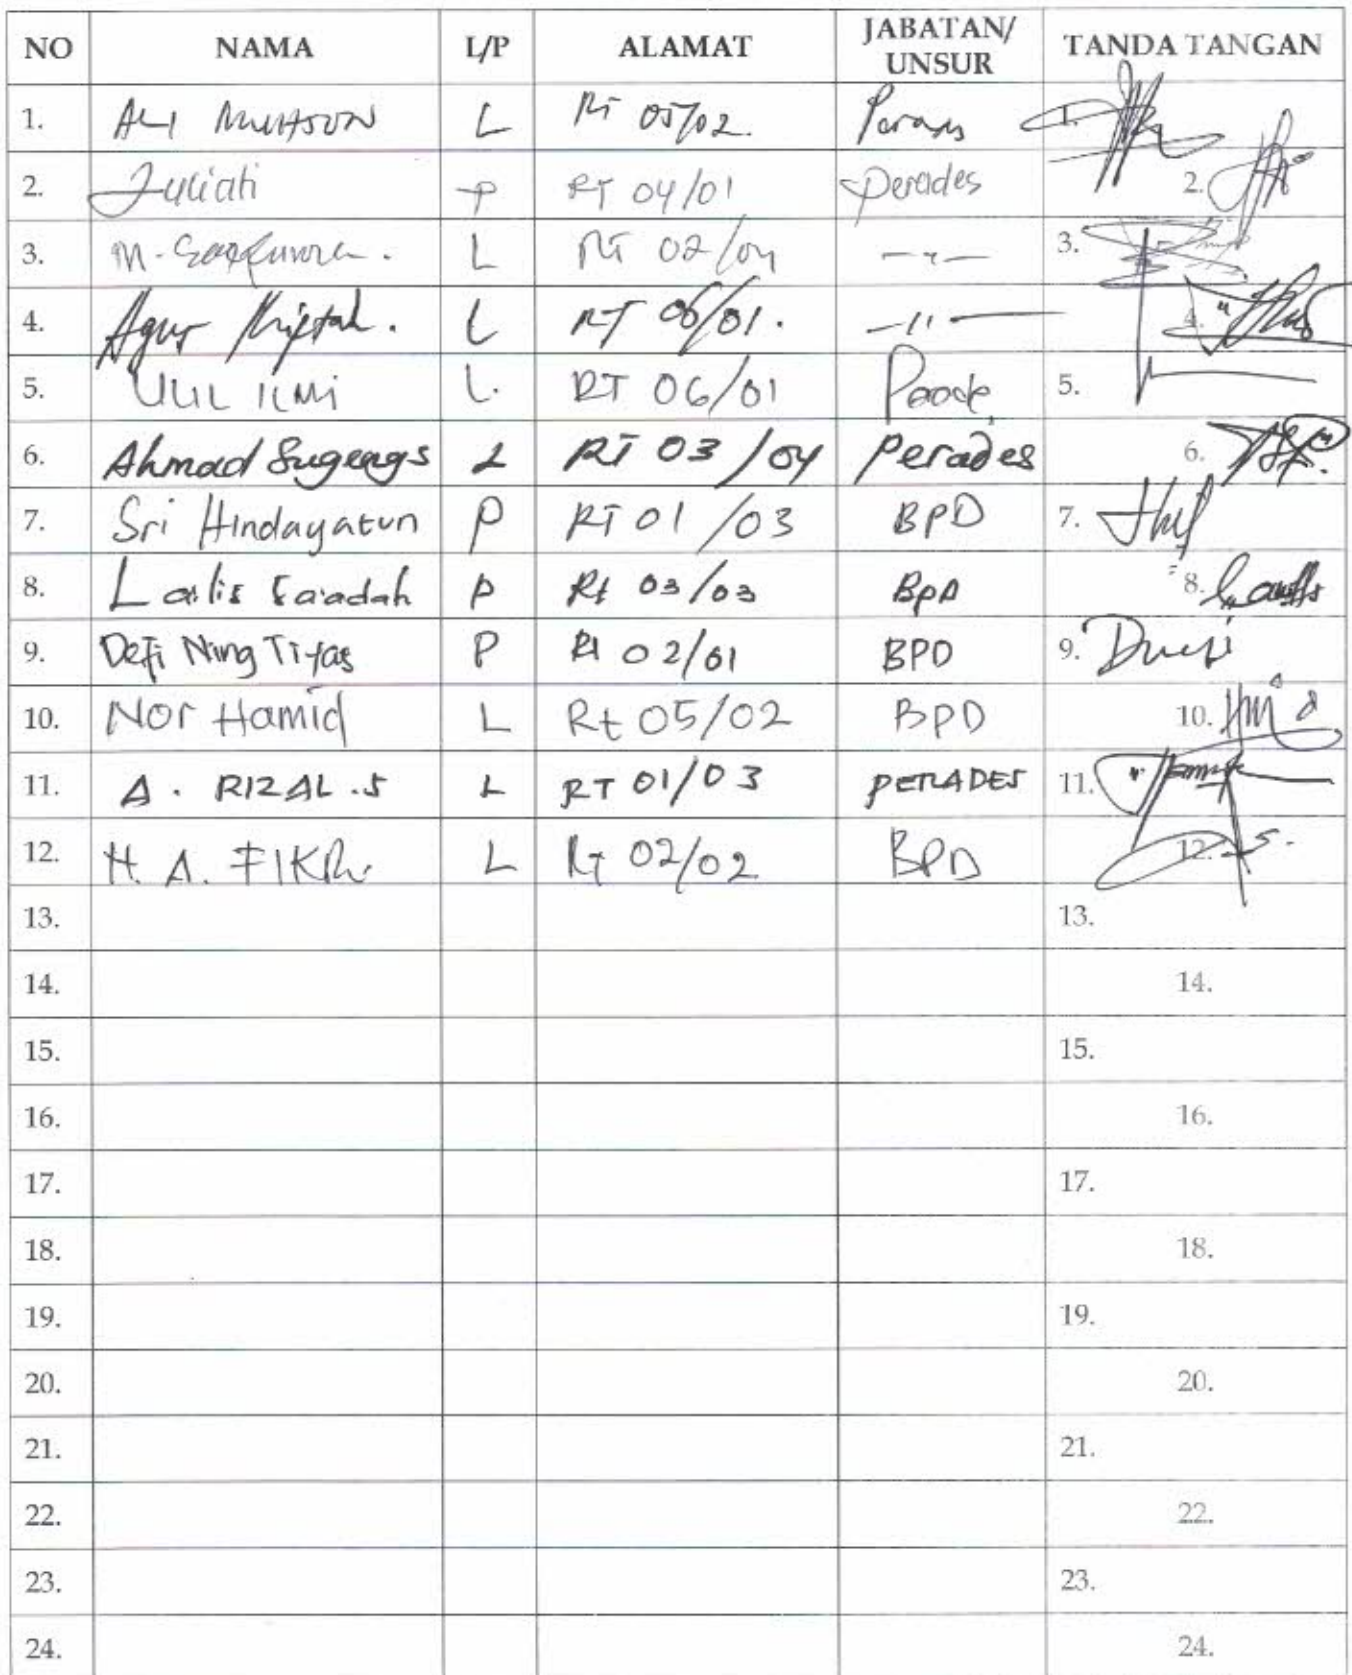 NO NAMA L/P ALAMAT JABATAN/ UNSUR TANDA TANGAN
1. ALI MUHTSON L Rt 05/02. 1.
2. Juliati P RT 04/01 Perades 2.
3. M. L Rt 02/04 -"- 3.
4. Agus Miftah. L RT 06/01. -"- 4.
5. ULIL ILMI L. RT 06/01 5.
6. Ahmad Sugengs L RT 03/04 Perades 6.
7. Sri Hindayatun P RT 01/03 BPD 7.
8. Lailis Saadah P Rt 03/03 BPD 8.
9. Defi Ning Tiyas P Rt 02/01 BPD 9.
10. Nor Hamid L Rt 05/02 BPD 10.
11. A. RIZAL.S L RT 01/03 PERADES 11.
12. H. A. FIKRi L Rt 02/02 BPD 12.
13. 13.
14. 14.
15. 15.
16. 16.
17. 17.
18. 18.
19. 19.
20. 20.
21. 21.
22. 22.
23. 23.
24. 24.